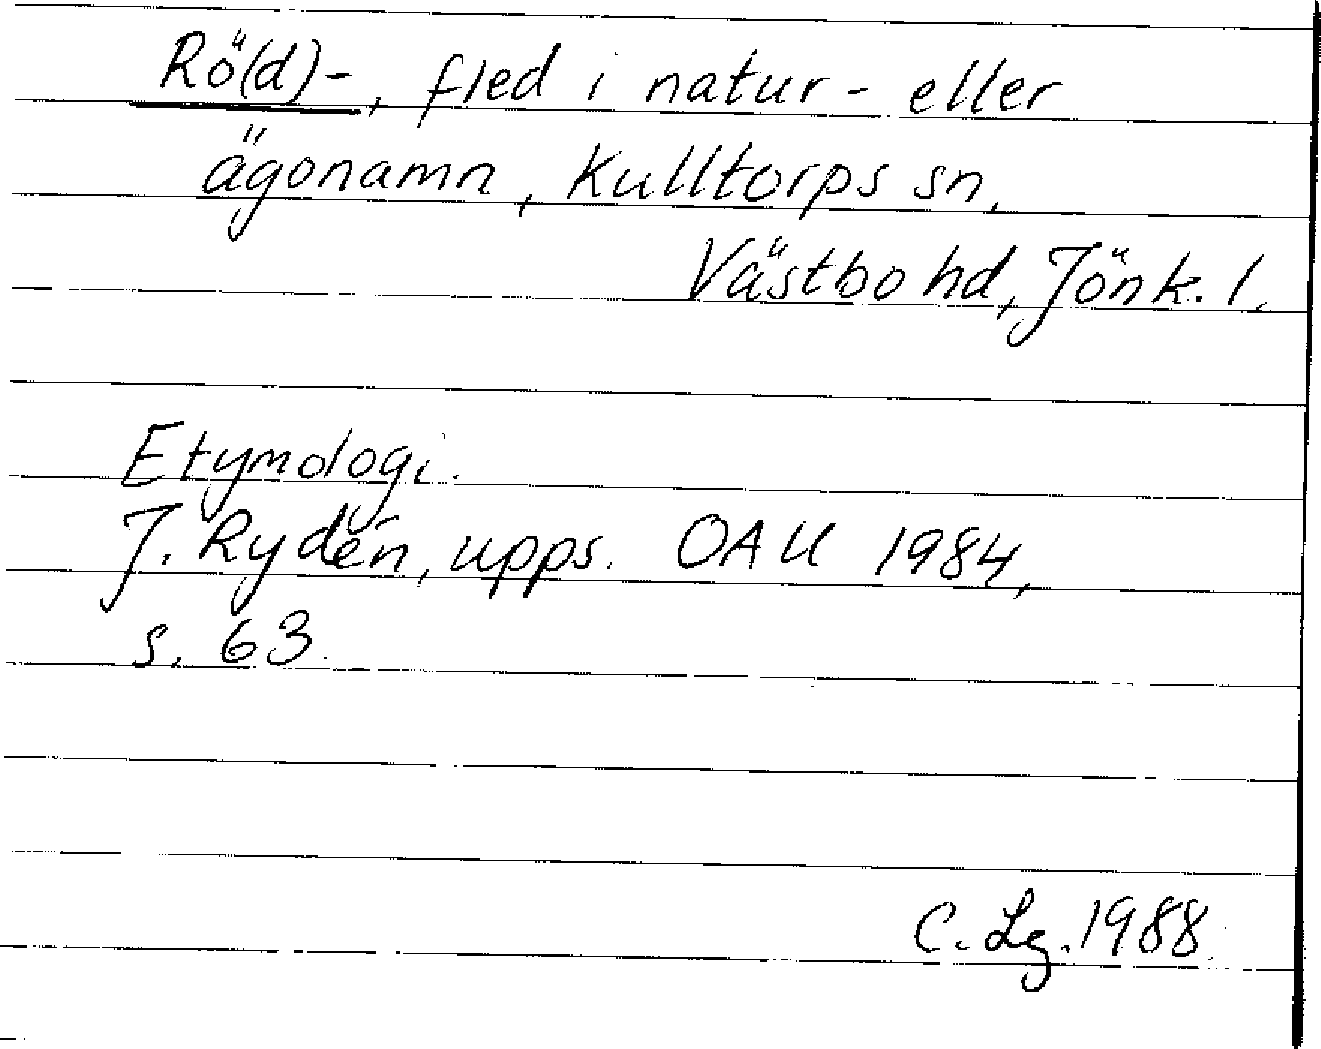 Rö(d)-, fled i natur- eller
ägonamn, Kulltorps sn,
Västbo hd, Jönk. l.
Etymologi.
J. Rydén, upps. OAU 1984,
s. 63.
C. Lg. 1988.